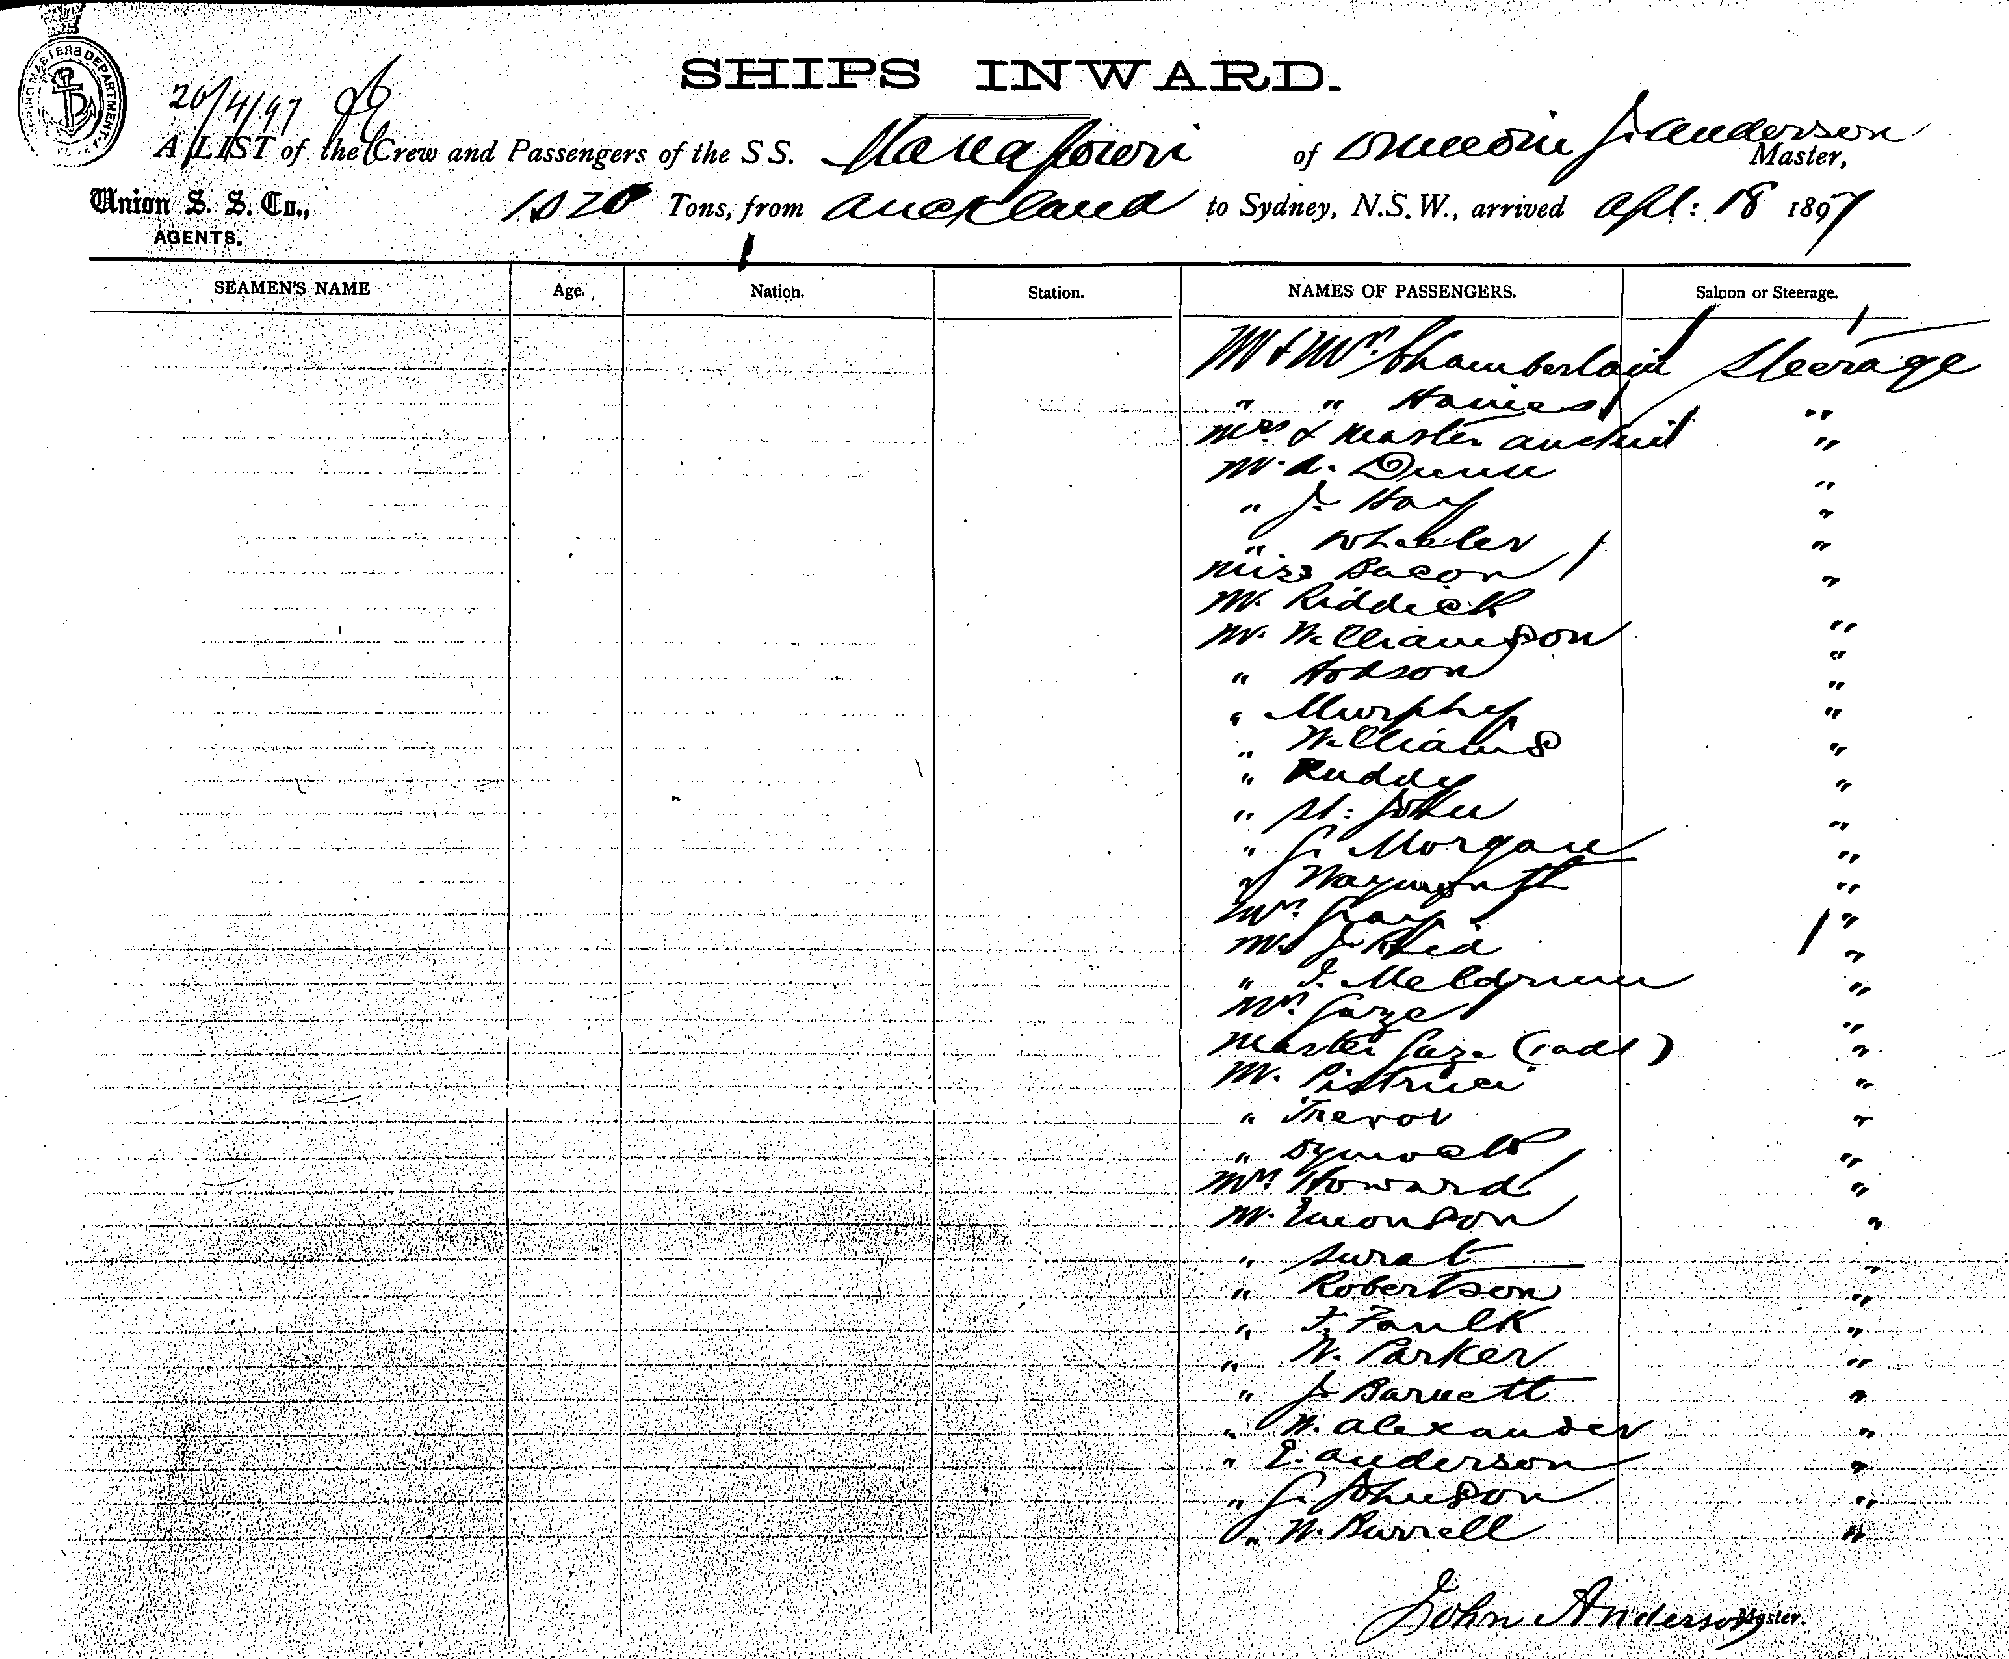 SHIPS INWARD.
20/4/97
A LIST of the Crew and Passengers of the S S. Manapouri of Dunedin J. Anderson Master,
Union S. S. Co., 1020 Tons, from Auckland to Sydney, N.S.W., arrived Apl: 18 1897
AGENTS.
SEAMEN'S NAME Age. Nation. Station. NAMES OF PASSENGERS. Saloon or Steerage.
Mr & Mrs Chamberlain Steerage
" " Haines "
Mrs & Master "
Mr. A. Dunn "
" J. Hay "
" Wheeler "
Miss Bacon "
Mr. Riddick "
Mr. Williamson "
" Hodson "
" Murphy "
" Williams "
" Ruddy "
" St. John "
" G. Morgan "
" Waymouth "
Mrs. Gray "
Mr. J. Reid "
" J. Meldrum "
Mrs. Gaze "
Master Gaze (1 adl) "
Mr. "
" Trevor "
" "
Mrs Howard "
Mr. Emonson "
" Surat "
" Robertson "
" F. Faulk "
" W. Parker "
" J. Barnett "
" W. Alexander "
" E. Anderson "
" G. Johnson "
" W. Burrell "
John Anderson Master.